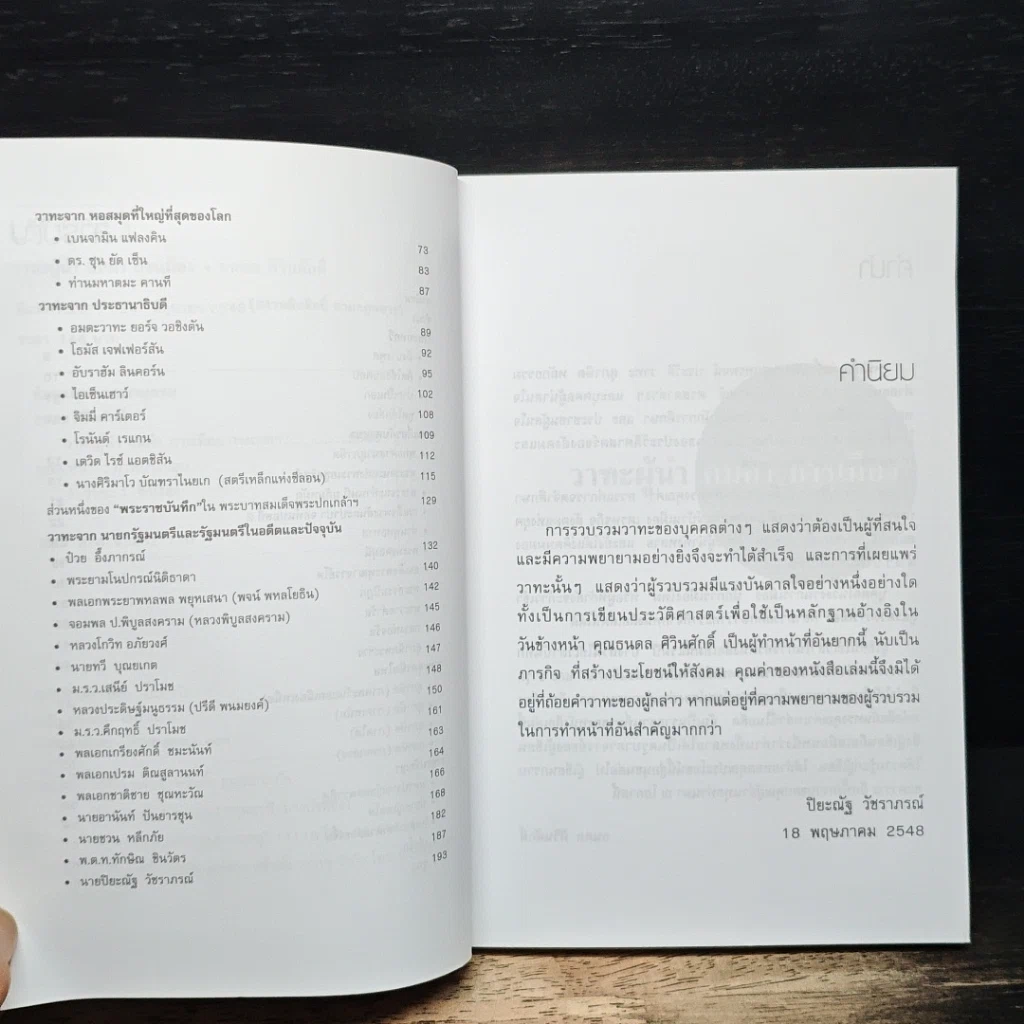 วาทะจาก หอสมุดที่ใหญ่ที่สุดของโลก
• เบนจามิน แฟลงคิน 73
• ดร. ซุน ยัด เซ็น 83
• ท่านมหาตมะ คานที 87
วาทะจาก ประธานาธิบดี
• อมตะวาทะ ยอร์จ วอชิงตัน 89
• โธมัส เจฟเฟอร์สัน 92
• อับราฮัม ลินคอร์น 95
• ไอเซ็นเฮาว์ 102
• จิมมี่ คาร์เตอร์ 108
• โรนันด์ เรแกน 109
• เดวิด ไรซ์ แอตชิสัน 112
• นางศิริมาโว บัณฑราไนยเก (สตรีเหล็กแห่งซีลอน) 115
ส่วนหนึ่งของ “พระราชบันทึก”ใน พระบาทสมเด็จพระปกเกล้าฯ 129
วาทะจาก นายกรัฐมนตรีและรัฐมนตรีในอดีตและปัจจุบัน
• ป๋วย อึ๊งภากรณ์ 132
• พระยามโนปกรณ์นิติธาดา 140
• พลเอกพระยาพหลพล พยุหเสนา (พจน์ พหลโยธิน) 142
• จอมพล ป.พิบูลสงคราม (หลวงพิบูลสงคราม) 145
• หลวงโกวิท อภัยวงศ์ 146
• นายทวี บุณยเกต 147
• ม.ร.ว.เสนีย์ ปราโมช 148
• หลวงประดิษฐ์มนูธรรม (ปรีดี พนมยงค์) 150
• ม.ร.ว.คึกฤทธิ์ ปราโมช 161
• พลเอกเกรียงศักดิ์ ชมะนันท์ 163
• พลเอกเปรม ติณสูลานนท์ 164
• พลเอกชาติชาย ชุณหะวัณ 166
• นายอานันท์ ปันยารชุน 168
• นายชวน หลีกภัย 182
• พ.ต.ท.ทักษิณ ชินวัตร 187
• นายปิยะณัฐ วัชราภรณ์ 193
คำนิยม
การรวบรวมวาทะของบุคคลต่างๆ แสดงว่าต้องเป็นผู้ที่สนใจ
และมีความพยายามอย่างยิ่งจึงจะทำได้สำเร็จ และการที่เผยแพร่
วาทะนั้นๆ แสดงว่าผู้รวบรวมมีแรงบันดาลใจอย่างหนึ่งอย่างใด
ทั้งเป็นการเขียนประวัติศาสตร์เพื่อใช้เป็นหลักฐานอ้างอิงใน
วันข้างหน้า คุณธนดล ศิวินศักดิ์ เป็นผู้ทำหน้าที่อันยากนี้ นับเป็น
ภารกิจ ที่สร้างประโยชน์ให้สังคม คุณค่าของหนังสือเล่มนี้จึงมิได้
อยู่ที่ถ้อยคำวาทะของผู้กล่าว หากแต่อยู่ที่ความพยายามของผู้รวบรวม
ในการทำหน้าที่อันสำคัญมากกว่า
ปิยะณัฐ วัชราภรณ์
18 พฤษภาคม 2548